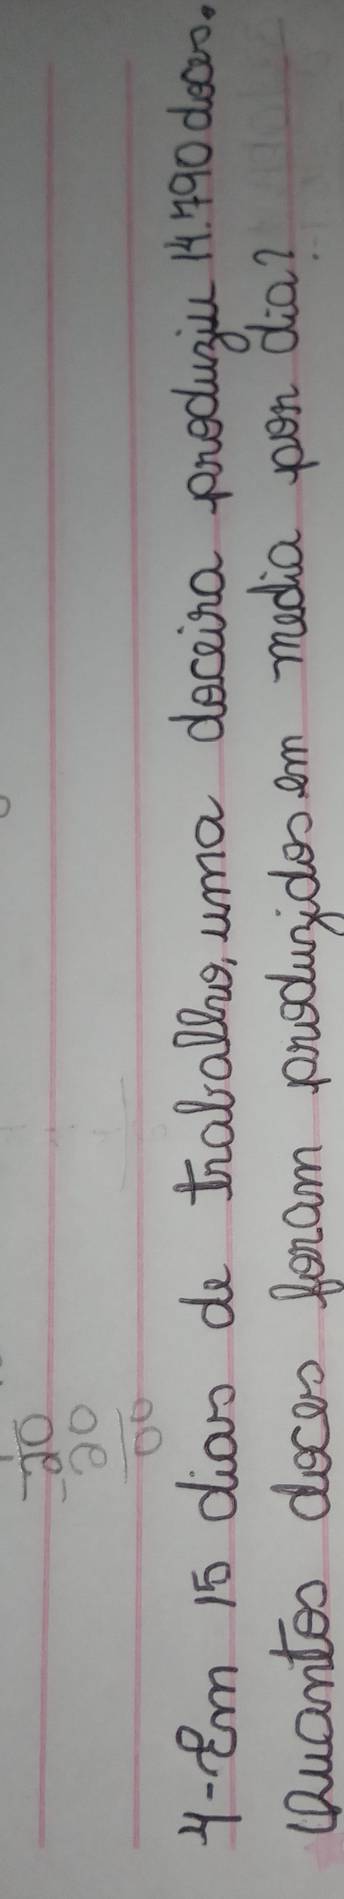 4-Em 15 dias de trabalho, uma doceira produziu 14.790 doces.
Quantos doces foram produzidos em media por dia?